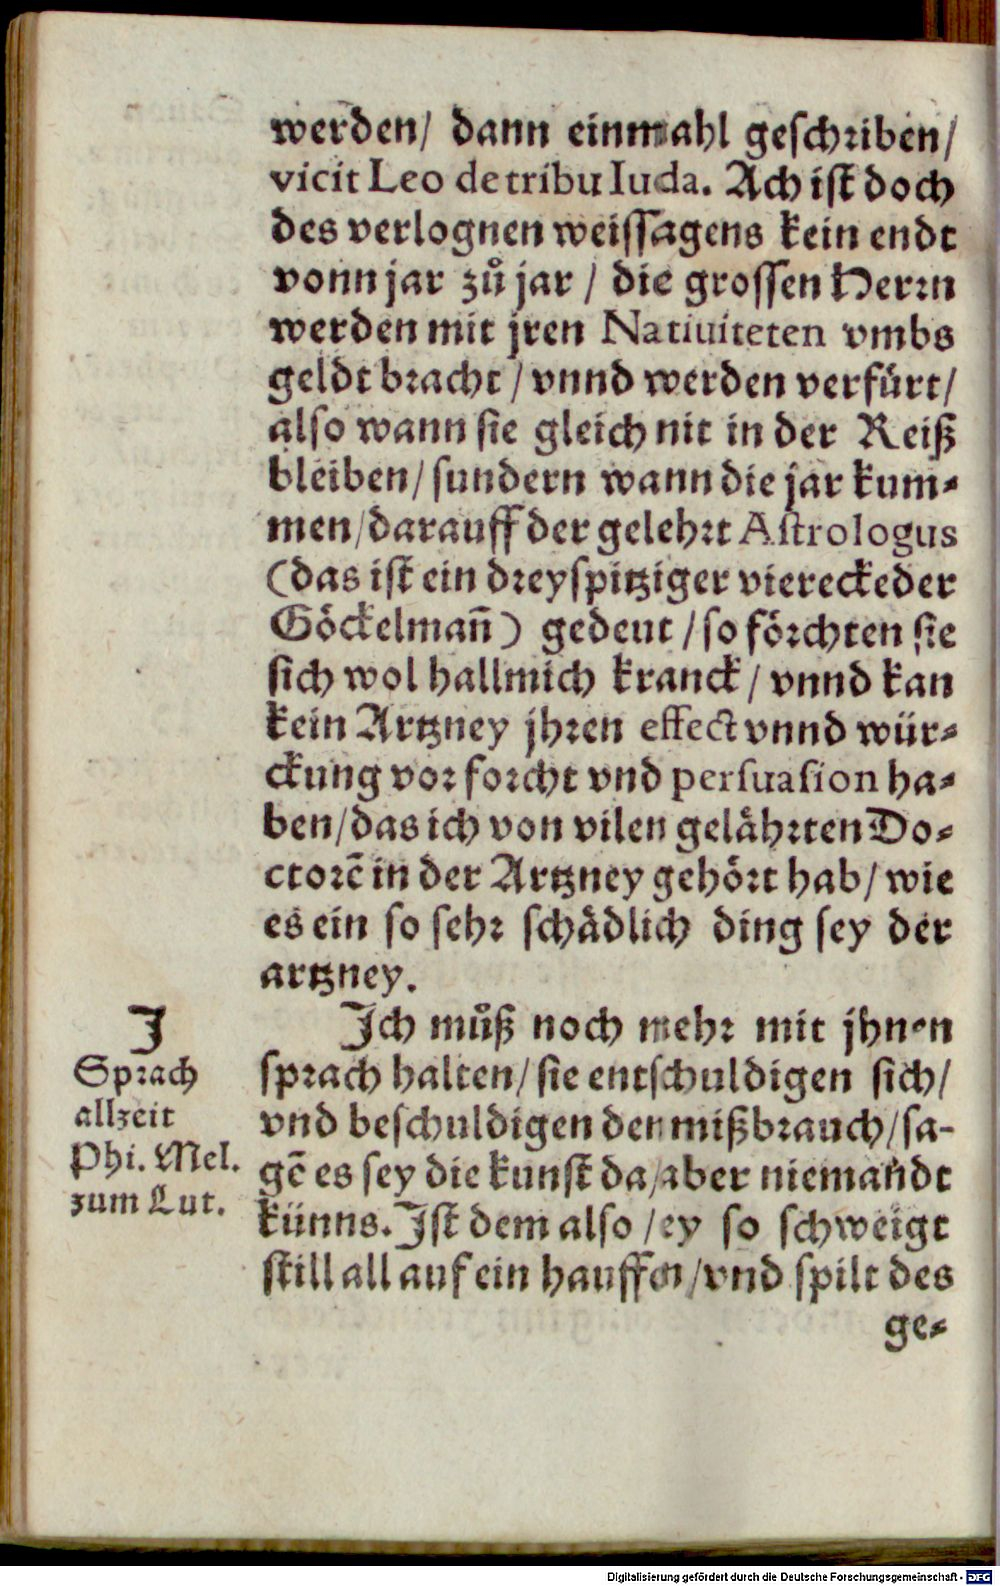 werden/ dann einmahl geschriben/
vicit Leo de tribu Iuda. Ach ist doch
des verlognen weissagens kein endt
vonn jar zů jar / die grossen Herrn
werden mit jren Natiuiteten vmbs
geldt bracht / vnnd werden verfürt/
also wann sie gleich nit in der Reiß
bleiben/ sundern wann die jar kum-
men/darauff der gelehrt Astrologus
(das ist ein dreyspitziger viereckeder
Göckelmañ) gedeut / so förchten sie
sich wol hallmich kranck / vnnd kan
kein Artzney jhren effect vnnd wür-
ckung vor forcht vnd persuasion ha-
ben/das ich von vilen gelährten Do-
ctorẽ in der Artzney gehört hab/ wie
es ein so sehr schädlich ding sey der
artzney.
Ich můß noch mehr mit jhnen
sprach halten/ sie entschuldigen sich/
vnd beschuldigen den mißbrauch/sa-
gẽ es sey die kunst da/aber niemandt
künns. Ist dem also /ey so schweigt
still all auf ein hauffen/vnd spilt des
ge-
J
Sprach
allzeit
Phi. Mel.
zum Lut.
Digitalisierung gefördert durch die Deutsche Forschungsgemeinschaft - DFG